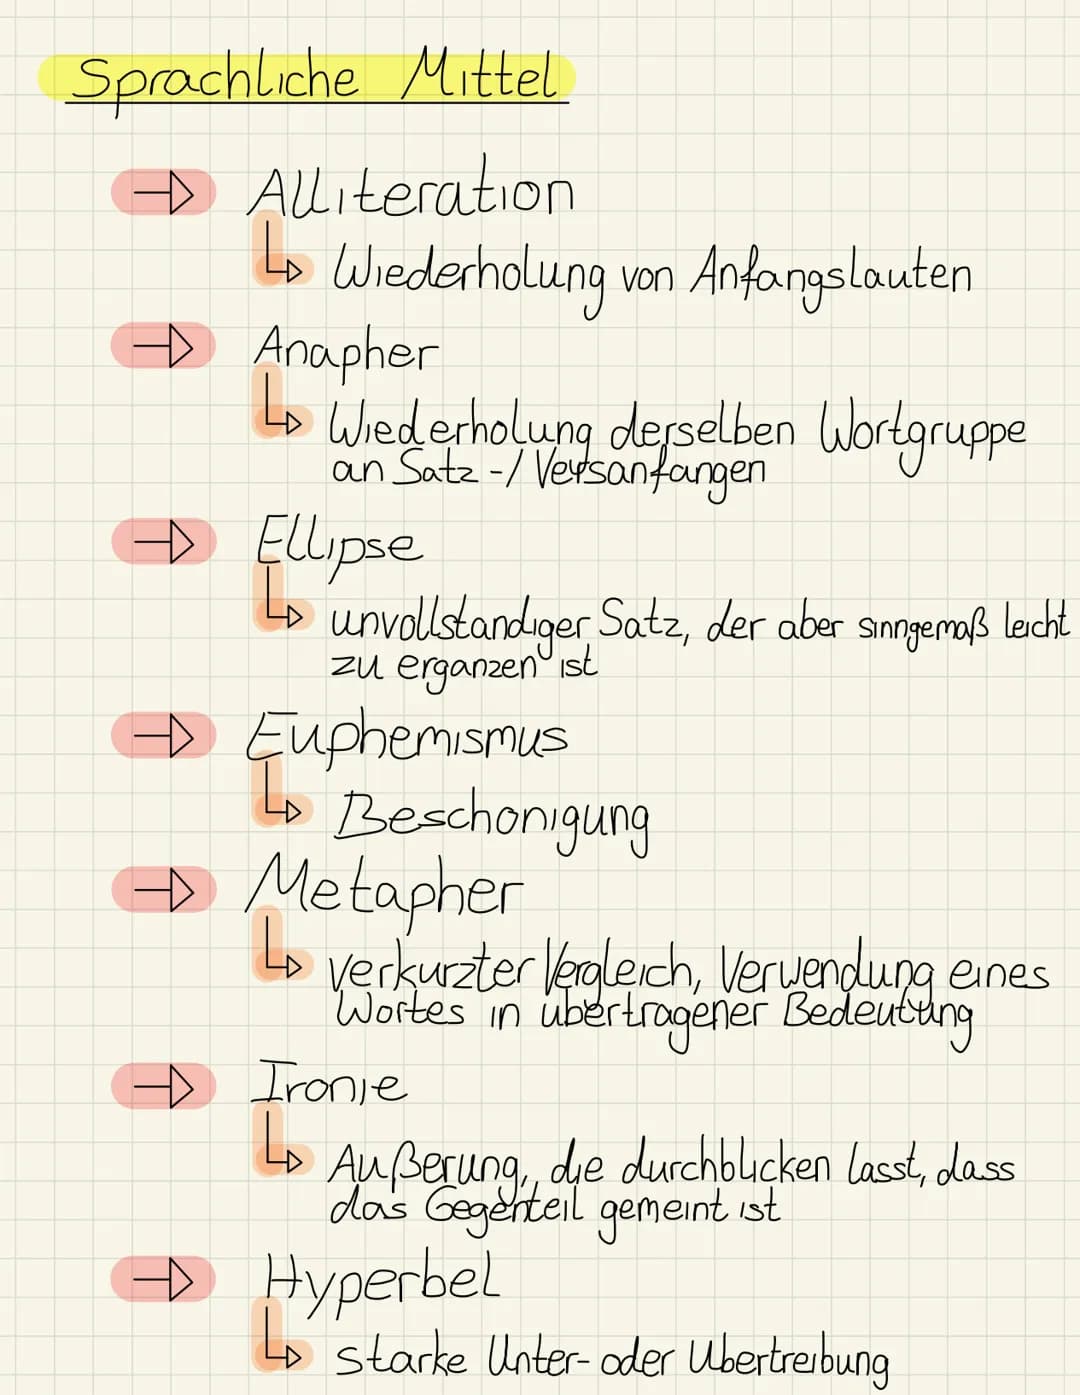 Sprachliche Mittel
Alliteration
Wiederholung von Anfangslauten
Anapher
Wiederholung derselben Wortgruppe
an Satz-/Versanfangen
Ellipse
unvollstandiger Satz, der aber sinngemaß leicht
zu erganzen ist
Euphemismus
Beschonigung
Metapher
verkurzter Vergleich, Verwendung eines
Wortes in ubertragener Bedeutung
Ironie
Außerung, die durchblicken lasst, dass
das Gegenteil gemeint ist
Hyperbel
starke Unter- oder Ubertreibung